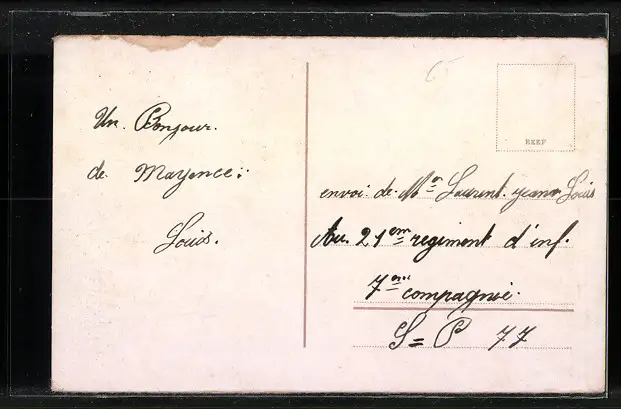 Un. Bonjour.
de. Mayence.
Louis.
EKKP
envoi. de. Mon Laurent. jeann Louis
Au. 21em regiment d'inf.
7em compagnie.
S = P 77